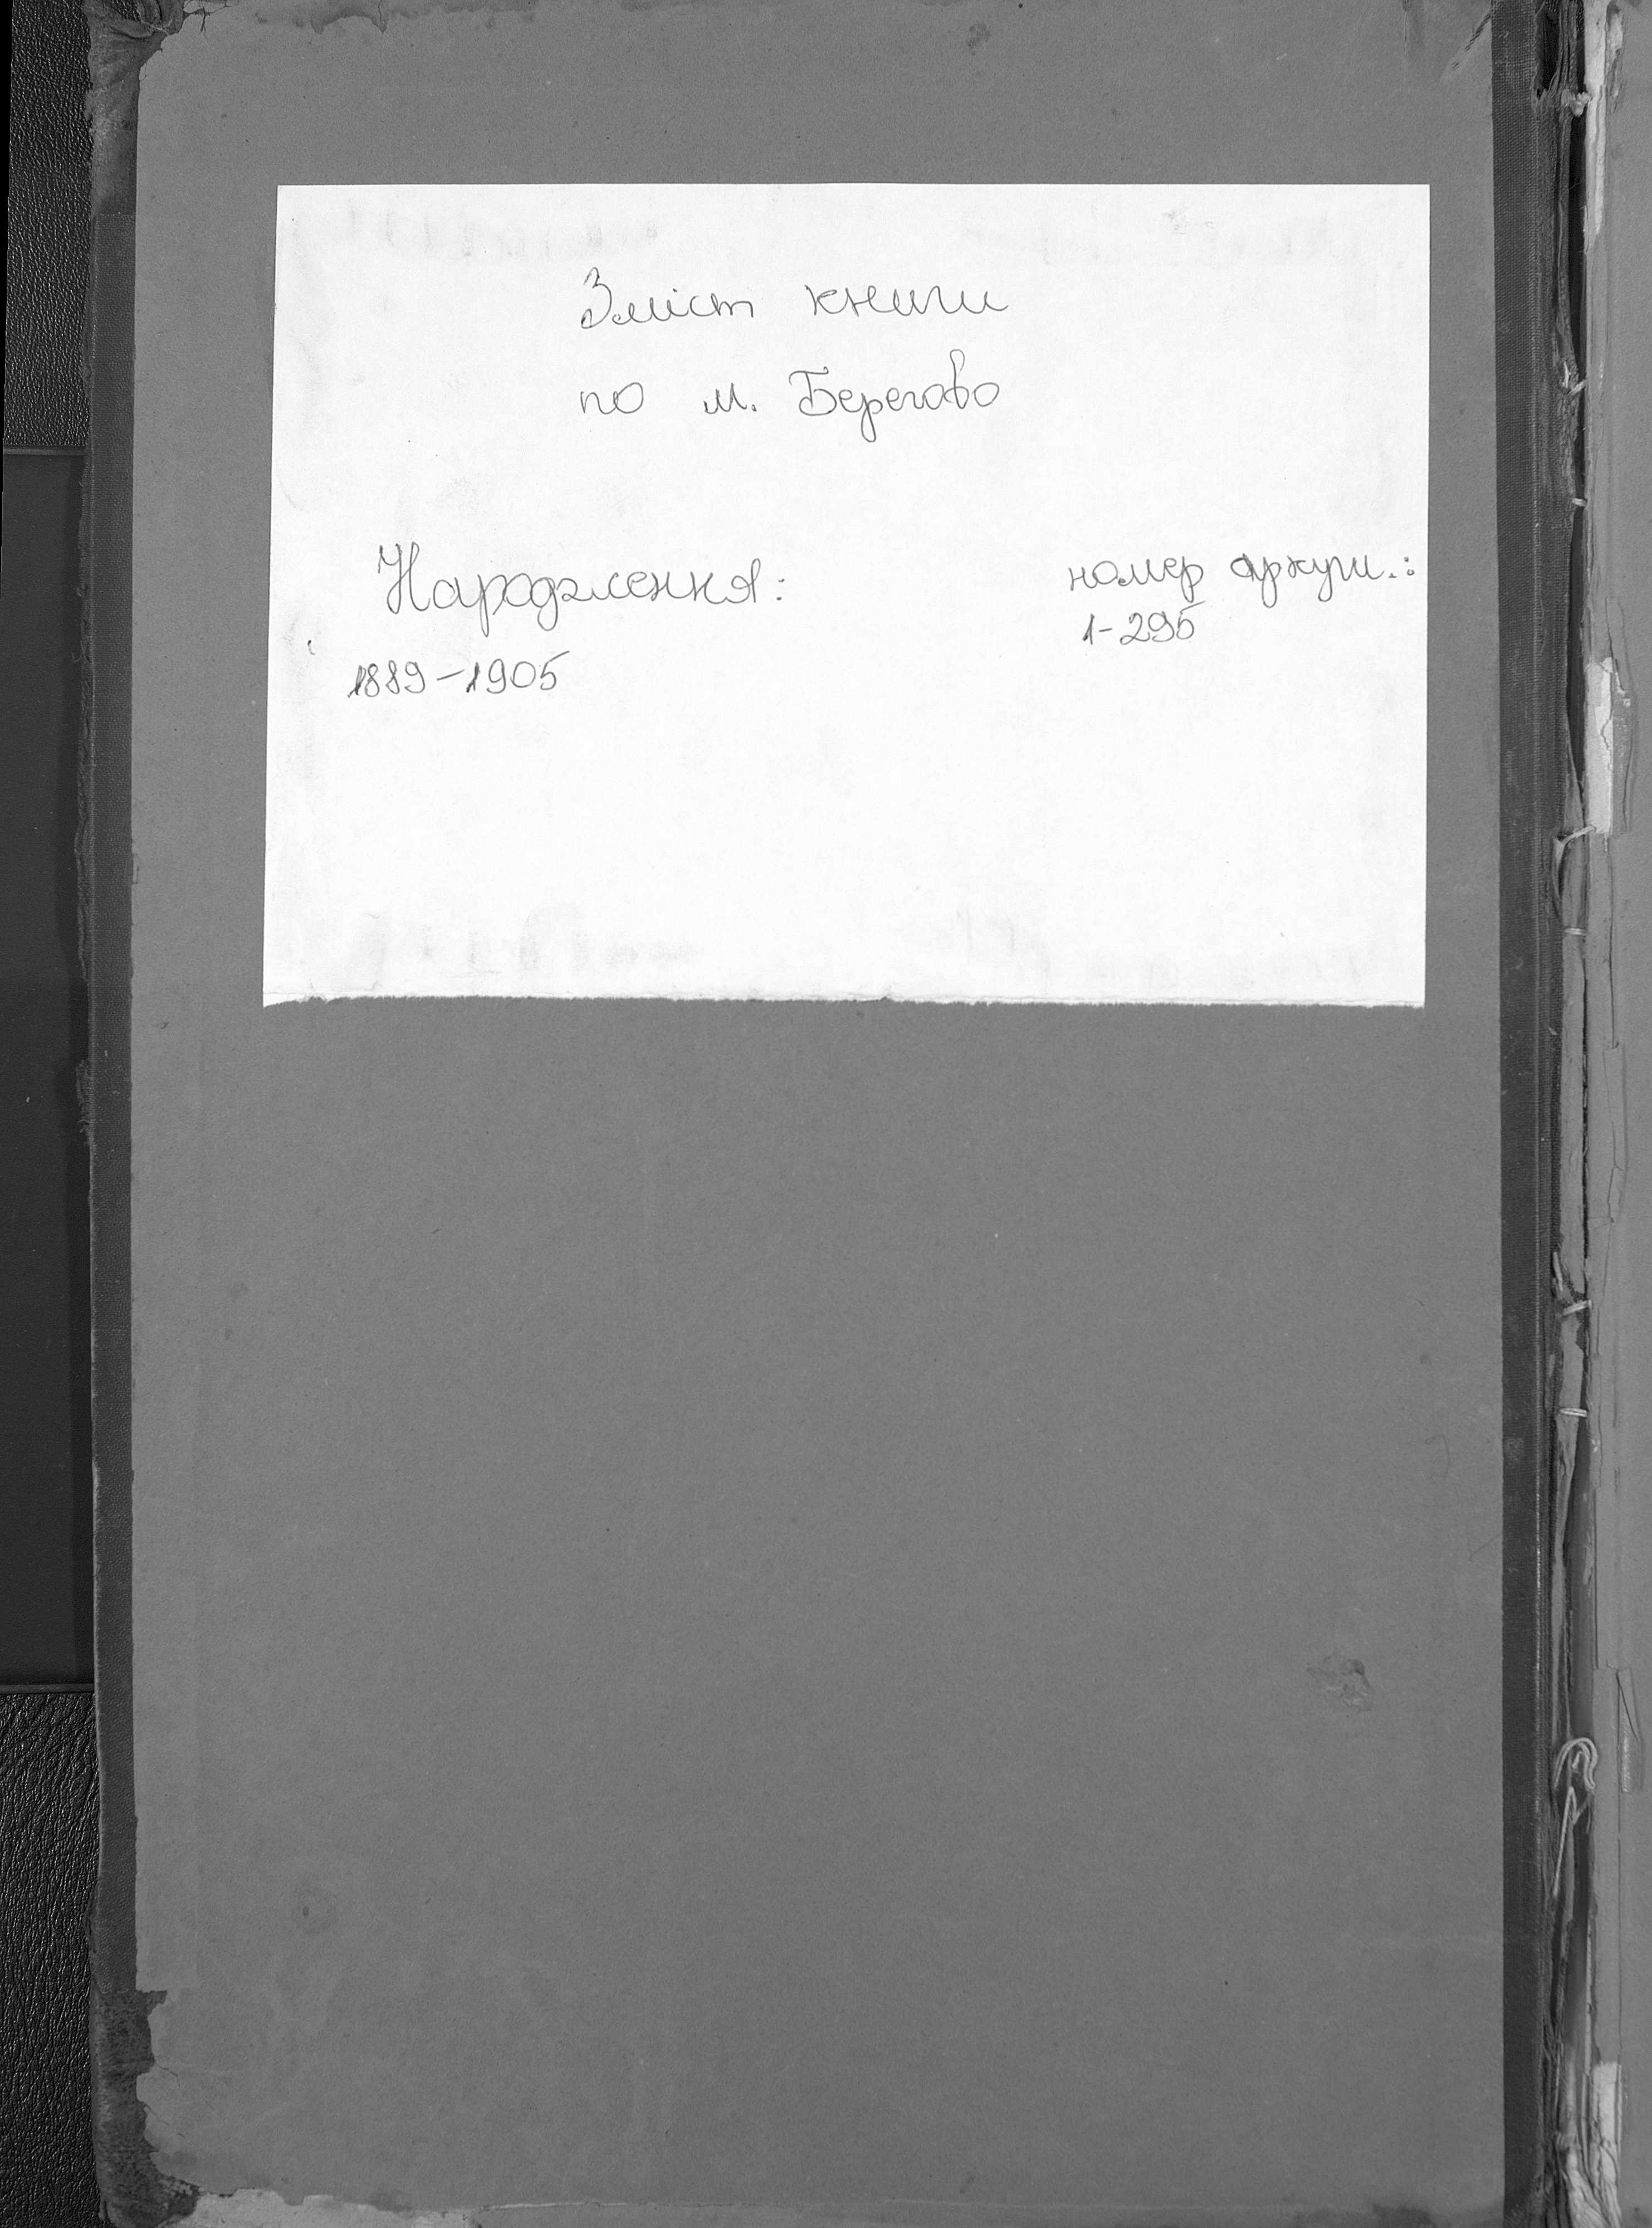 Зміст книги
по м. Берегово
Народження: номер аркуш.:
1-295
1889-1905